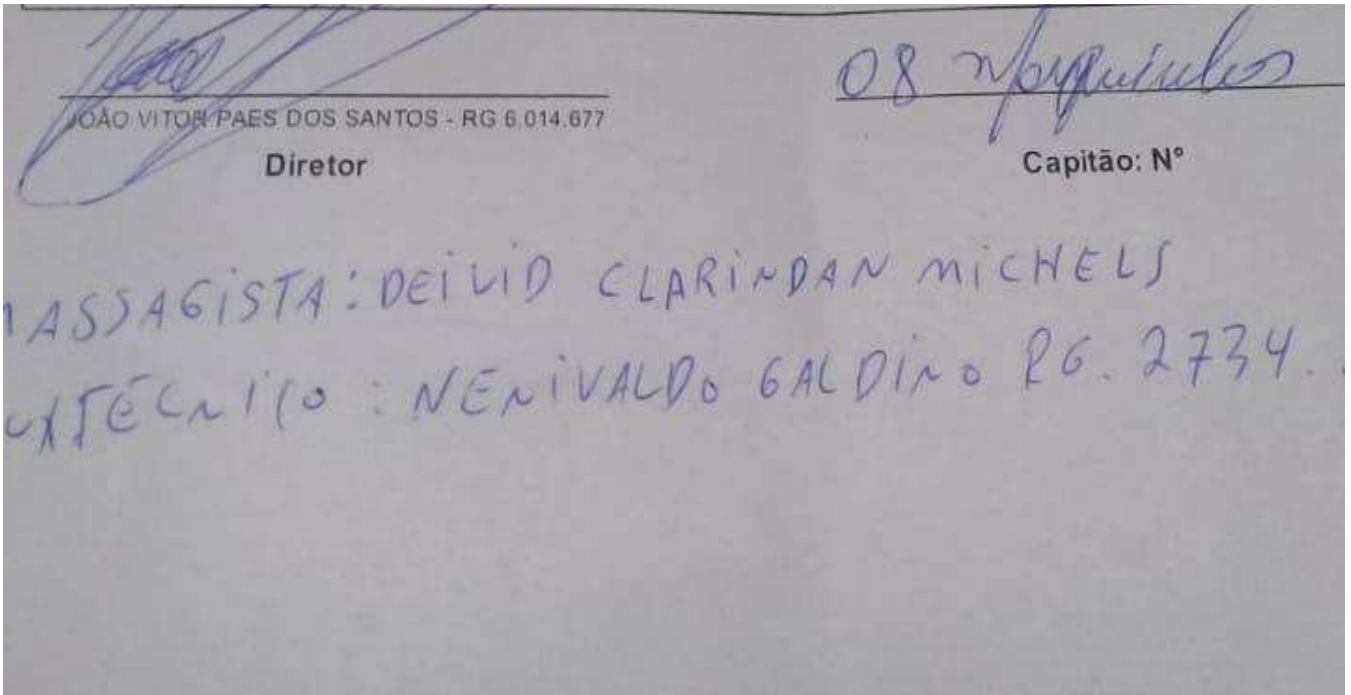 08 Marquinhos
JOÃO VITOR PAES DOS SANTOS - RG 6.014.677
Diretor
Capitão: Nº
MASSAGISTA: DEIVID CLARINDAN MICHELS
UXTÉCNICO: NENIVALDO GALDINO RG. 2734.